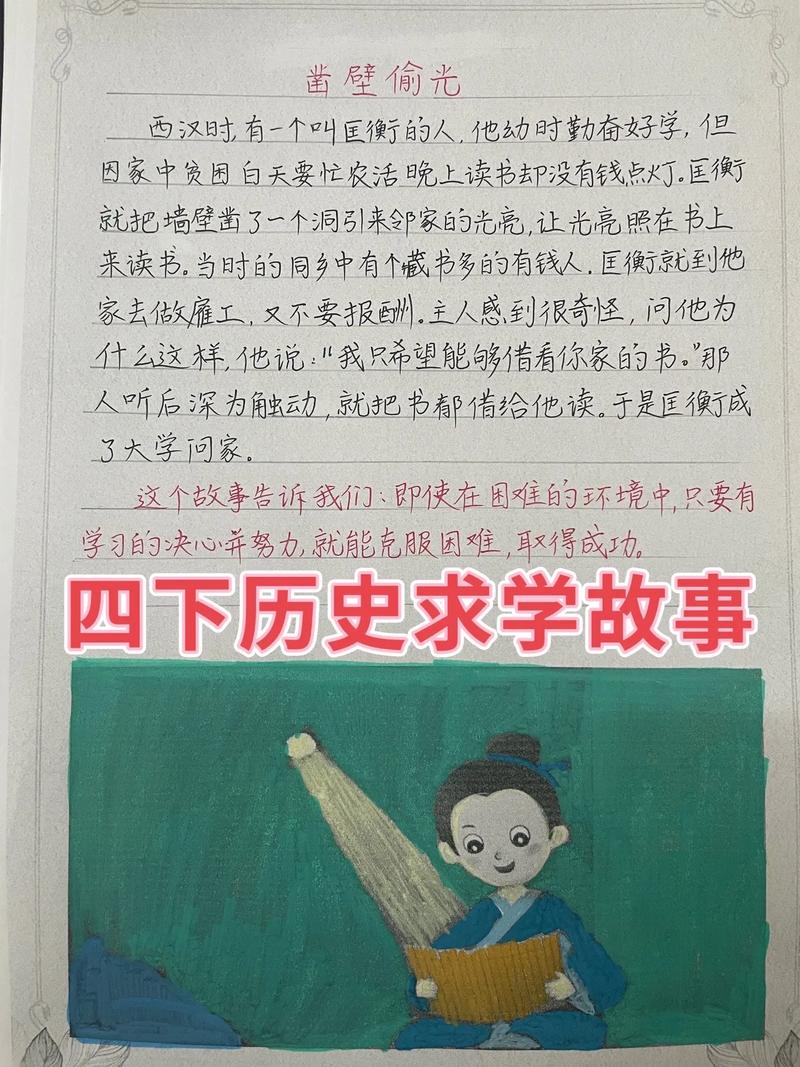 凿壁偷光
西汉时,有一个叫匡衡的人,他幼时勤奋好学,但
因家中贫困白天要忙农活晚上读书却没有钱点灯。匡衡
就把墙壁凿了一个洞引来邻家的光亮,让光亮照在书上
来读书。当时的同乡中有个藏书多的有钱人.匡衡就到他
家去做雇工,又不要报酬。主人感到很奇怪,问他为
什么这样,他说:“我只希望能够借看你家的书。”那
人听后深为触动,就把书都借给他读。于是匡衡成
了大学问家。
这个故事告诉我们:即使在困难的环境中,只要有
学习的决心并努力,就能克服困难,取得成功。
四下历史求学故事